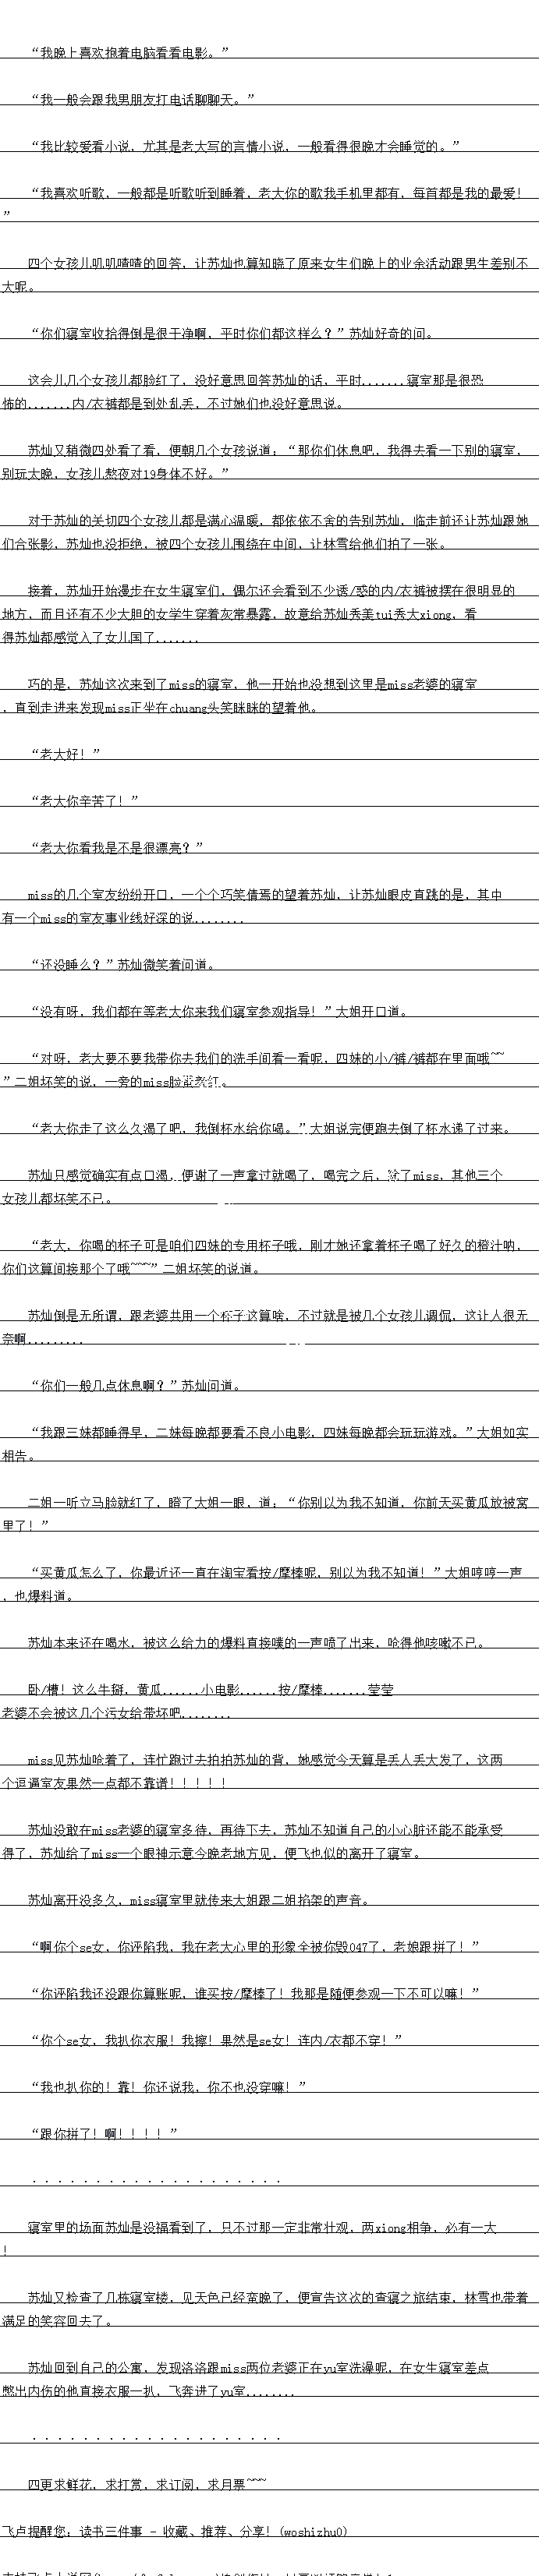 “我晚上喜欢抱着电脑看看电影。”
“我一般会跟我男朋友打电话聊聊天。”
“我比较爱看小说，尤其是老大写的言情小说，一般看得很晚才会睡觉的。”
“我喜欢听歌，一般都是听歌听到睡着，老大你的歌我手机里都有，每首都是我的最爱！
”
四个女孩儿叽叽喳喳的回答，让苏灿也算知晓了原来女生们晚上的业余活动跟男生差别不
大呢。
“你们寝室收拾得倒是很干净啊，平时你们都这样么？”苏灿好奇的问。
这会儿几个女孩儿都脸红了，没好意思回答苏灿的话，平时.......寝室那是很恐
怖的.......内/衣裤都是到处乱丢，不过她们也没好意思说。
苏灿又稍微四处看了看，便朝几个女孩说道：“那你们休息吧，我得去看一下别的寝室，
别玩太晚，女孩儿熬夜对19身体不好。”
对于苏灿的关切四个女孩儿都是满心温暖，都依依不舍的告别苏灿，临走前还让苏灿跟她
们合张影，苏灿也没拒绝，被四个女孩儿围绕在中间，让林雪给他们拍了一张。
接着，苏灿开始漫步在女生寝室们，偶尔还会看到不少诱/惑的内/衣裤被摆在很明显的
地方，而且还有不少大胆的女学生穿着灰常暴露，故意给苏灿秀美tui秀大xiong，看
得苏灿都感觉入了女儿国了.......
巧的是，苏灿这次来到了miss的寝室，他一开始也没想到这里是miss老婆的寝室
，直到走进来发现miss正坐在chuang头笑眯眯的望着他。
“老大好！”
“老大你辛苦了！”
“老大你看我是不是很漂亮？”
miss的几个室友纷纷开口，一个个巧笑倩焉的望着苏灿，让苏灿眼皮直跳的是，其中
有一个miss的室友事业线好深的说........
“还没睡么？”苏灿微笑着问道。
“没有呀，我们都在等老大你来我们寝室参观指导！”大姐开口道。
“对呀，老大要不要我带你去我们的洗手间看一看呢，四妹的小/裤/裤都在里面哦~~
”二姐坏笑的说，一旁的miss脸蛋羞红。
“老大你走了这么久渴了吧，我倒杯水给你喝。”大姐说完便跑去倒了杯水递了过来。
苏灿只感觉确实有点口渴，便谢了一声拿过就喝了，喝完之后，除了miss，其他三个
女孩儿都坏笑不已。
“老大，你喝的杯子可是咱们四妹的专用杯子哦，刚才她还拿着杯子喝了好久的橙汁呐，
你们这算间接那个了哦~~~”二姐坏笑的说道。
苏灿倒是无所谓，跟老婆共用一个杯子这算啥，不过就是被几个女孩儿调侃，这让人很无
奈啊.........
“你们一般几点休息啊？”苏灿问道。
“我跟三妹都睡得早，二妹每晚都要看不良小电影，四妹每晚都会玩玩游戏。”大姐如实
相告。
二姐一听立马脸就红了，瞪了大姐一眼，道：“你别以为我不知道，你前天买黄瓜放被窝
里了！”
“买黄瓜怎么了，你最近还一直在淘宝看按/摩棒呢，别以为我不知道！”大姐哼哼一声
，也爆料道。
苏灿本来还在喝水，被这么给力的爆料直接噗的一声喷了出来，呛得他咳嗽不已。
卧/槽！这么牛掰，黄瓜......小电影......按/摩棒.......莹莹
老婆不会被这几个污女给带坏吧........
miss见苏灿呛着了，连忙跑过去拍拍苏灿的背，她感觉今天算是丢人丢大发了，这两
个逗逼室友果然一点都不靠谱！！！！！
苏灿没敢在miss老婆的寝室多待，再待下去，苏灿不知道自己的小心脏还能不能承受
得了，苏灿给了miss一个眼神示意今晚老地方见，便飞也似的离开了寝室。
苏灿离开没多久，miss寝室里就传来大姐跟二姐掐架的声音。
“啊你个se女，你诬陷我，我在老大心里的形象全被你毁047了，老娘跟拼了！”
“你诬陷我还没跟你算账呢，谁买按/摩棒了！我那是随便参观一下不可以嘛！”
“你个se女，我扒你衣服！我擦！果然是se女！连内/衣都不穿！”
“我也扒你的！靠！你还说我，你不也没穿嘛！”
“跟你拼了！啊！！！！”
．．．．．．．．．．．．．．．．．．．．
寝室里的场面苏灿是没福看到了，只不过那一定非常壮观，两xiong相争，必有一大
！
苏灿又检查了几栋寝室楼，见天色已经蛮晚了，便宣告这次的查寝之旅结束，林雪也带着
满足的笑容回去了。
苏灿回到自己的公寓，发现洛洛跟miss两位老婆正在yu室洗澡呢，在女生寝室差点
憋出内伤的他直接衣服一扒，飞奔进了yu室........
．．．．．．．．．．．．．．．．．．．．
四更求鲜花，求打赏，求订阅，求月票~~~
飞卢提醒您：读书三件事 - 收藏、推荐、分享！(woshizhu0)